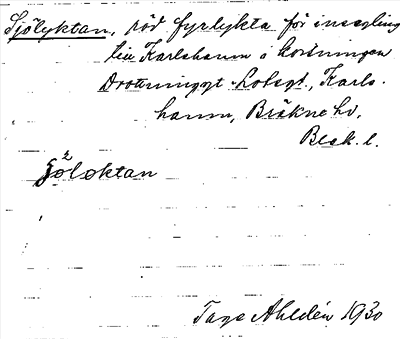 Sjölyktan, röd fyrlykta för insegling
till Karlshamn i korsningen
Drottninggt - Lotsgt., Karls-
hamn, Bräkne hd,
Blek. l.
2
Sjöloktan
Tage Ahldén 1930